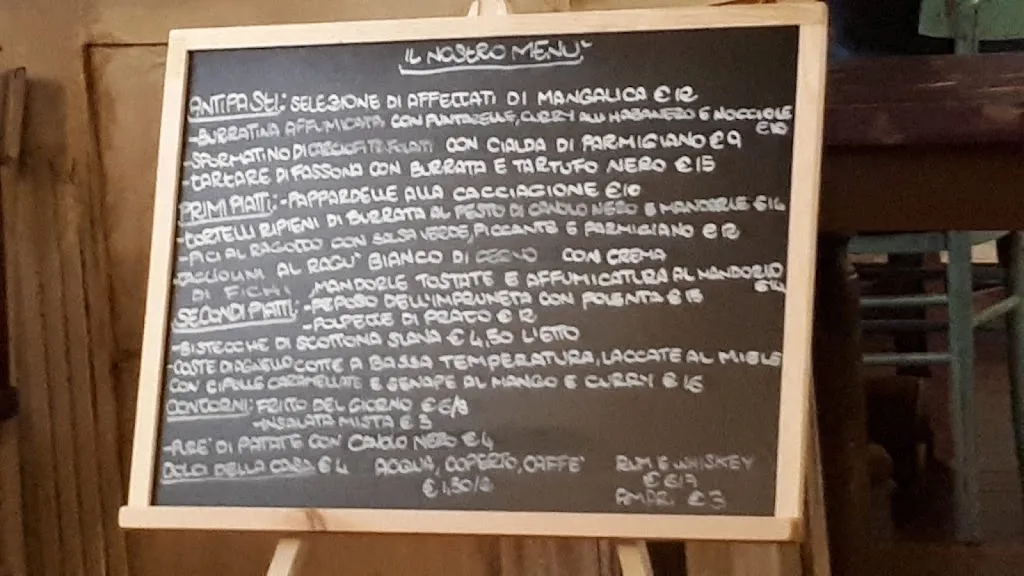 IL NOSTRO MENU'
ANTIPASTI: SELEZIONE DI AFFETTATI DI MANGALICA € 12
-BURRATINA AFFUMICATA CON PUNTARELLE, CURRY ALL' HABANERO E NOCCIOLE
€10
-SFORMATINO DI CARCIOFI TRIFOLATI CON CIALDA DI PARMIGIANO € 9
-TARTARE DI FASSONA CON BURRATA E TARTUFO NERO € 15
PRIMI PIATTI: -PAPPARDELLE ALLA CACCIAGIONE €10
-TORTELLI RIPIENI DI BURRATA AL PESTO DI CAVOLO NERO E MANDORLE €14
-PICI AL RAGOTTO CON SALSA VERDE, PICCANTE E PARMIGIANO € 12
-TAGLIOLINI AL RAGU' BIANCO DI CON CREMA
DI FICHI, MANDORLE TOSTATE E AFFUMICATURA AL MANDORLO
SECONDI PIATTI: -PEPOSO DELL'IMPRUNETA CON POLENTA € 15
-POLPETTE DI PRATO € 12
-BISTECCHE DI SCOTTONA SLAVA € 4,50 L'ETTO
-COSTE DI AGNELLO COTTE A BASSA TEMPERATURA, LACCATE AL MIELE
CON CIPOLLE CARAMELLATE E SENAPE AL MANGO E CURRY € 16
CONTORNI: FRITTO DEL GIORNO € 6/8
-INSALATA MISTA € 3
-PURE' DI PATATE CON CAVOLO NERO € 4
DOLCI DELLA CASA € 4 ACQUA, COPERTO, CAFFE' RUM E WHISKEY
€ 1,50/2 € 6/7
AMARI € 3